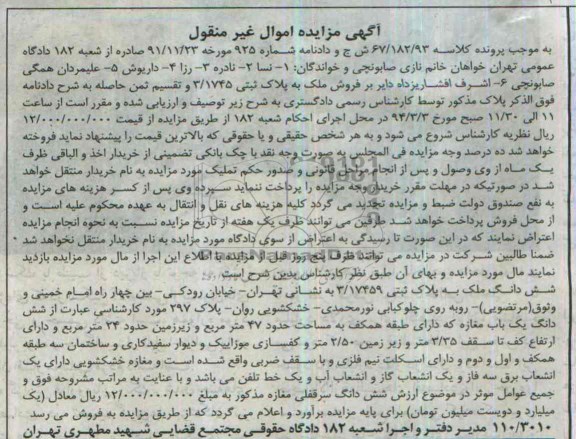 آگهی مزایده اموال غیر منقول
به موجب پرونده کلاسه ۶۷/۱۸۲/۹۳ ش ج و دادنامه شماره ۹۲۵ مورخه ۹۱/۱۱/۲۳ صادره از شعبه ۱۸۲ دادگاه
عمومی تهران خواهان خانم نازی صابونچی و خواندگان: ۱- نسا ۲- نادره ۳- رزا ۴- داریوش ۵- علیمردان همگی
صابونچی ۶- اشرف افشاریزداه دایر بر فروش ملک به پلاک ثبتی ۳/۱۷۴۵ و تقسیم ثمن حاصله به شرح دادنامه
فوق الذکر پلاک مذکور توسط کارشناس رسمی دادگستری به شرح زیر توصیف و ارزیابی شده و مقرر است از ساعت
۱۱ الی ۱۱/۳۰ صبح مورخ ۹۴/۳/۳ در محل اجرای احکام شعبه ۱۸۲ از طریق مزایده از قیمت ۱۲/۰۰۰/۰۰۰/۰۰۰
ریال نظریه کارشناس شروع می شود و به هر شخص حقیقی و یا حقوقی که بالاترین قیمت را پیشنهاد نماید فروخته
خواهد شد ده درصد وجه مزایده فی المجلس به صورت وجه نقد یا چک بانکی تضمینی از خریدار اخذ و الباقی ظرف
یک ماه از وی وصول و پس از انجام قانونی و صدور حکم تملیک مورد مزایده به نام خریدار منتقل خواهد
شد در صورتیکه در مهلت مقرر خریدار وجه مزایده را پرداخت ننماید سپرده وی پس از کسر هزینه های مزایده
به نفع صندوق دولت ضبط و مزایده تجدید می گردد کلیه هزینه های نقل و انتقال به عهده محکوم علیه است و
از محل فروش پرداخت خواهد شد طرفین می توانند ظرف یک هفته از تاریخ مزایده نسبت به نحوه انجام مزایده
اعتراض نمایند که در این صورت تا رسیدگی به اعتراض از سوی دادگاه مورد مزایده به نام خریدار منتقل نخواهد شد
ضمنا طالبین شرکت در مزایده می توانند ظرف پنج روز قبل از مزایده با اطلاع این اجرا از مال مورد مزایده بازدید
نمایند مال مورد مزایده و بهای آن طبق نظر کارشناس بدین شرح است.
شش دانگ ملک به پلاک ثبتی ۳/۱۷۴۵۹ به نشانی تهران- خیابان رودکی- بین چهار راه امام خمینی و
وثوق(مرتضوی)- روبه روی چلوکبابی نورمحمدی- خشکشویی روان- پلاک ۲۹۷ مورد کارشناسی عبارت از شش
دانگ یک باب مغازه که دارای طبقه همکف به مساحت حدود ۴۷ متر مربع و زیرزمین حدود ۲۴ متر مربع و دارای
ارتفاع کف تا سقف ۳/۳۵ متر و زیر زمین ۲/۵۰ متر و کفسازی موزاییک و دیوار سفیدکاری و ساختمان سه طبقه
همکف و اول و دوم و دارای اسکلت نیم فلزی و با سقف ضربی واقع شده است و مغازه خشکشویی دارای یک
انشعاب برق سه فاز و یک انشعاب گاز و انشعاب آب و یک خط تلفن می باشد و با عنایت به مراتب مشروحه فوق و
جمیع عوامل موثر در موضوع ارزش شش دانگ سرقفلی مغازه مذکور به مبلغ ۱۲/۰۰۰/۰۰۰/۰۰۰ ریال معادل (یک
میلیارد و دویست میلیون تومان) برای پایه مزایده برآورد و اعلام می گردد که از طریق مزایده به فروش می رسد
۱۱۰/۳۰۱۰ مدیر دفتر و اجرا شعبه ۱۸۲ دادگاه حقوقی مجتمع قضایی شهید مطهری تهران